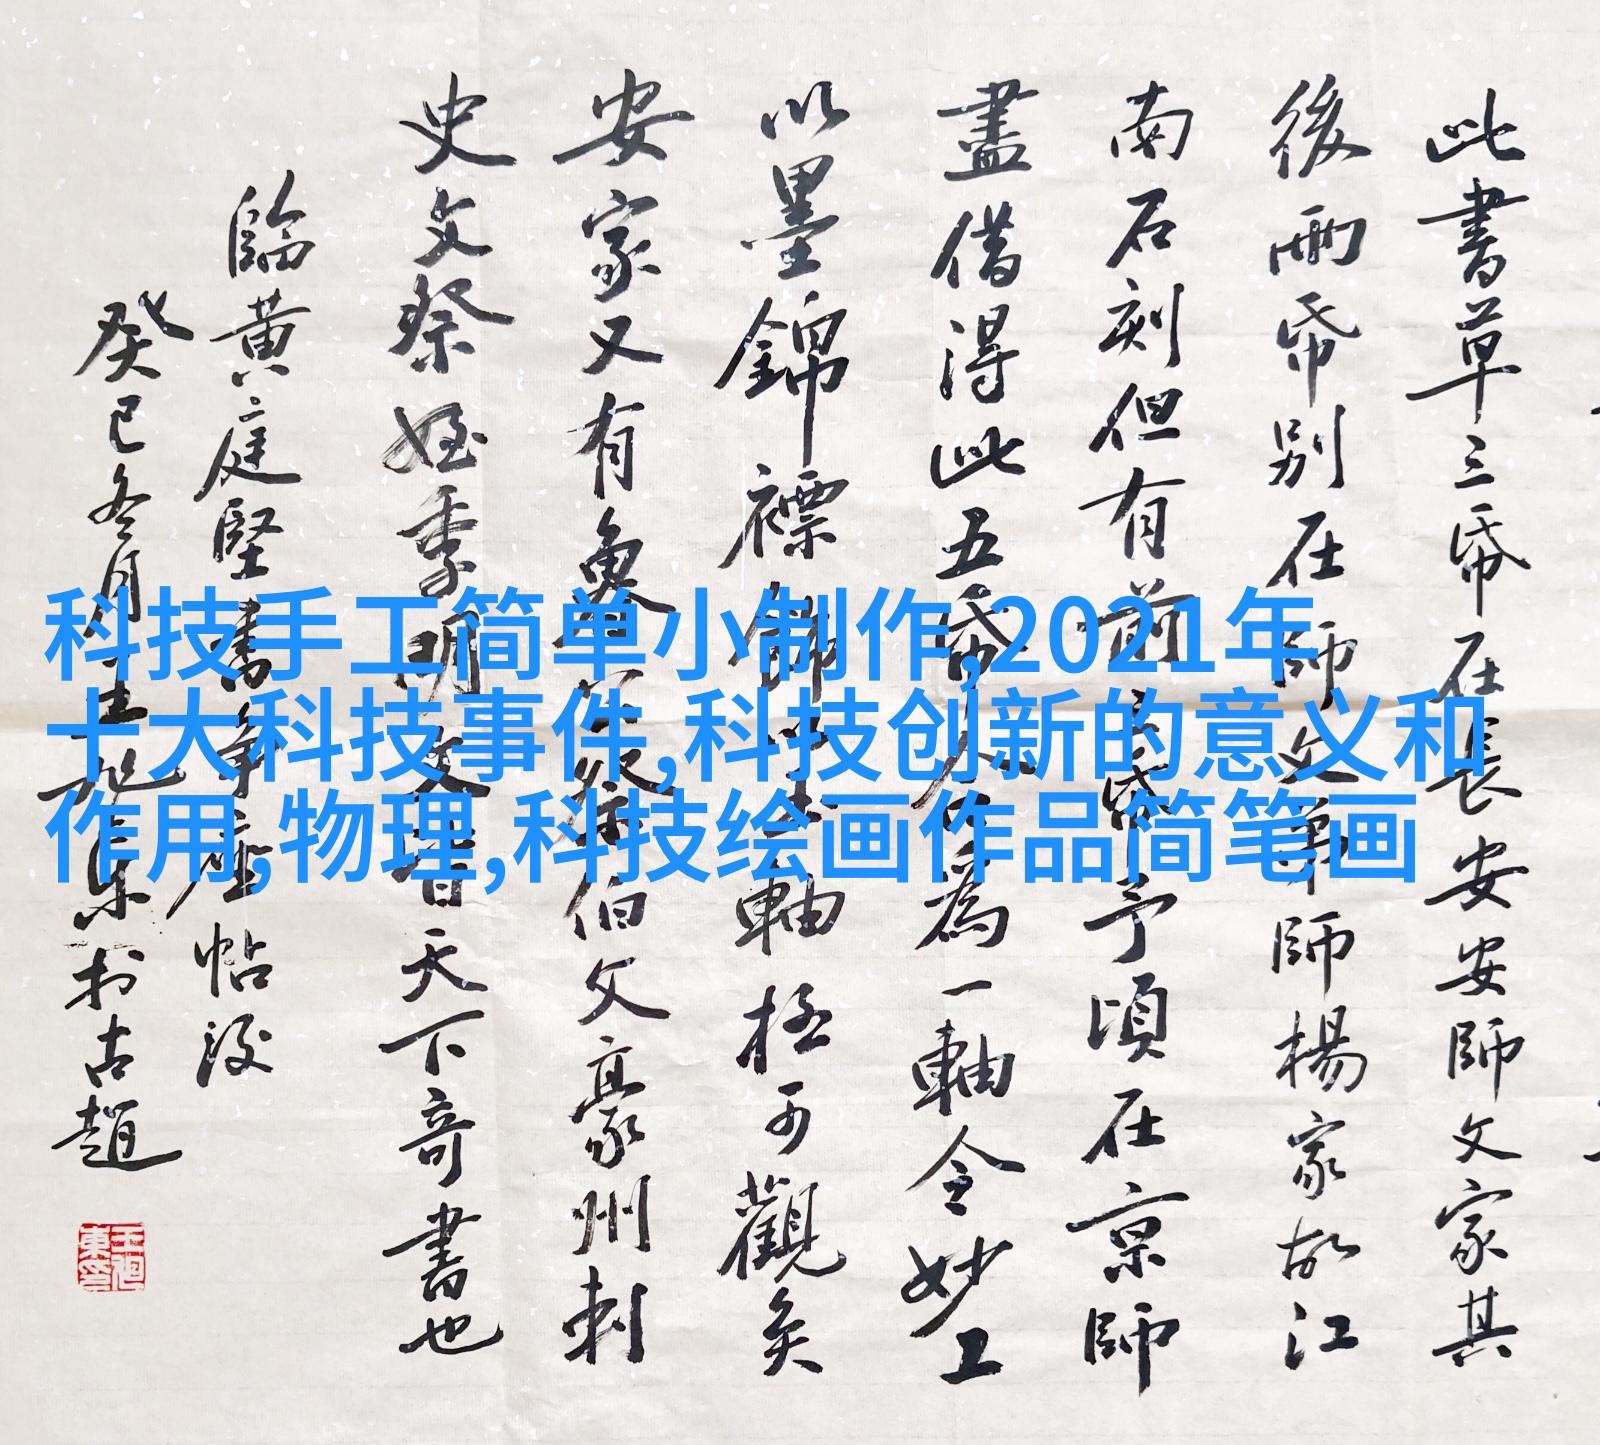 此書草三帋在長安安師文家其
後兩帋別在師文弟師楊家故江
南石刻但有前三帋予頃在京師
盡借得此五帋合為一軸令妙工
以墨錦褾飾玉軸極可觀矣
安家又有魯公祭伯父豪州刺
史文祭姪季明文皆天下奇書也
臨黃庭堅書爭座帖後
癸巳冬月
科技手工简单小制作,2021年
十大科技事件,科技创新的意义和
作用,物理,科技绘画作品简笔画